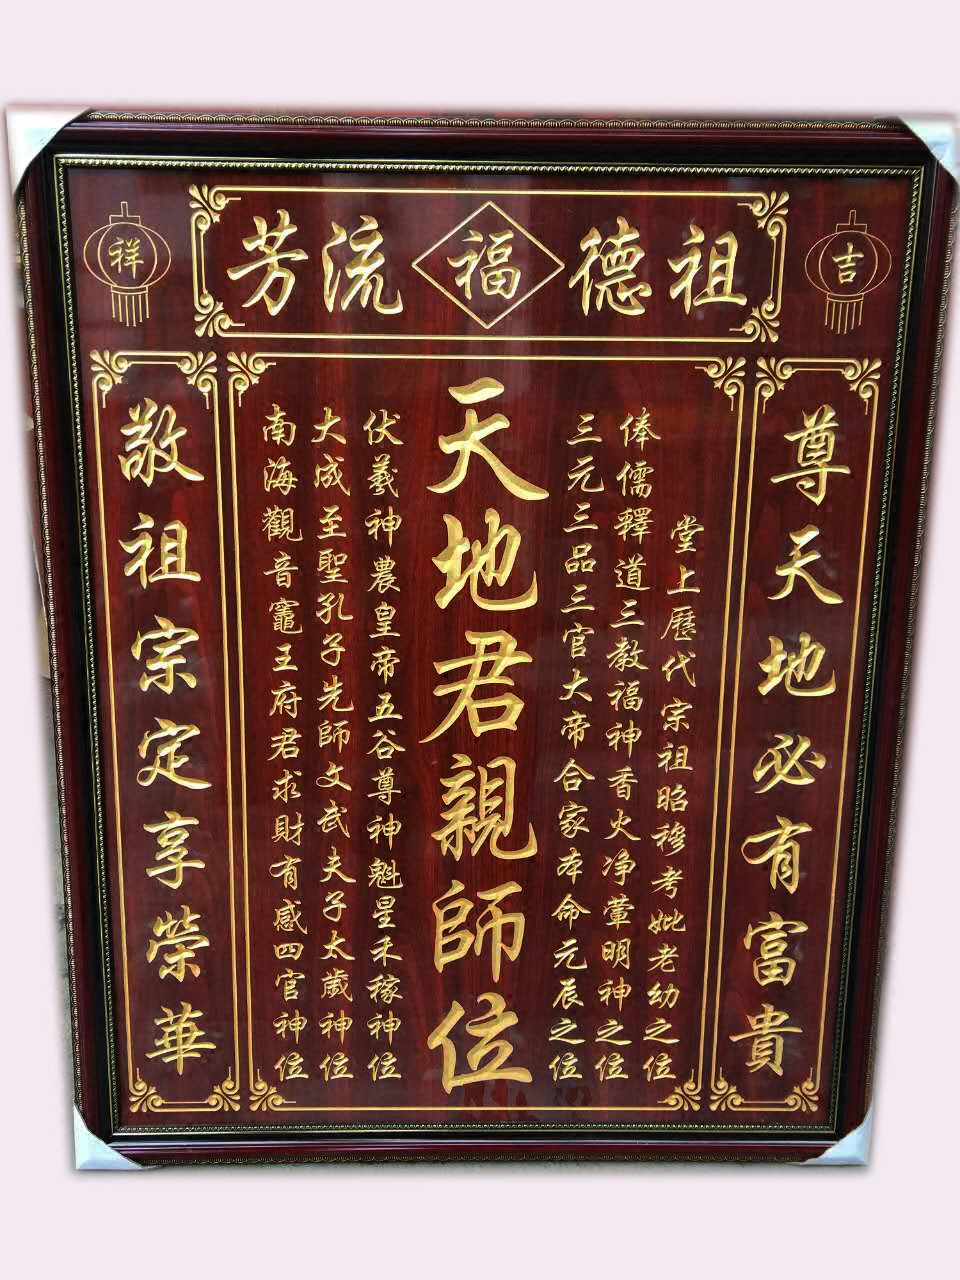 吉
祖德福流芳
祥
尊天地必有富貴
堂上歷代宗祖昭穆考妣老幼之位
俸儒釋道三教福神香火净葷明神之位
三元三品三官大帝合家本命元辰之位
天地君親師位
伏羲神農皇帝五谷尊神魁星禾稼神位
大成至聖孔子先師文武夫子太歲神位
南海觀音竈王府君求財有感四官神位
敬祖宗定享榮華